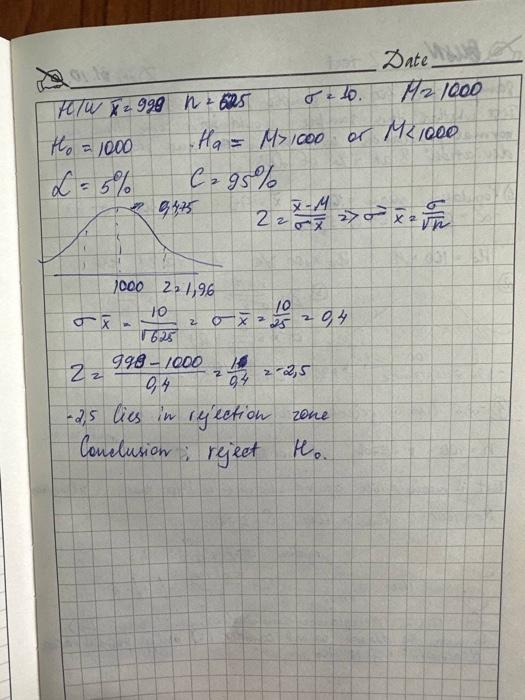 Date
H/W x̄ = 999 n = 625 σ = 10. M = 1000
H₀ = 1000 Ha = M > 1000 or M < 1000
α = 5% C = 95%
0,475
Z = x̄ - M / σx̄ => σx̄ = σ / √n
1000 Z = 1,96
σx̄ = 10 / √625 = σx̄ = 10 / 25 = 0,4
Z = 999 - 1000 / 0,4 = 1 / 0,4 = -2,5
-2,5 lies in rejection zone
Conclusion: reject H₀.